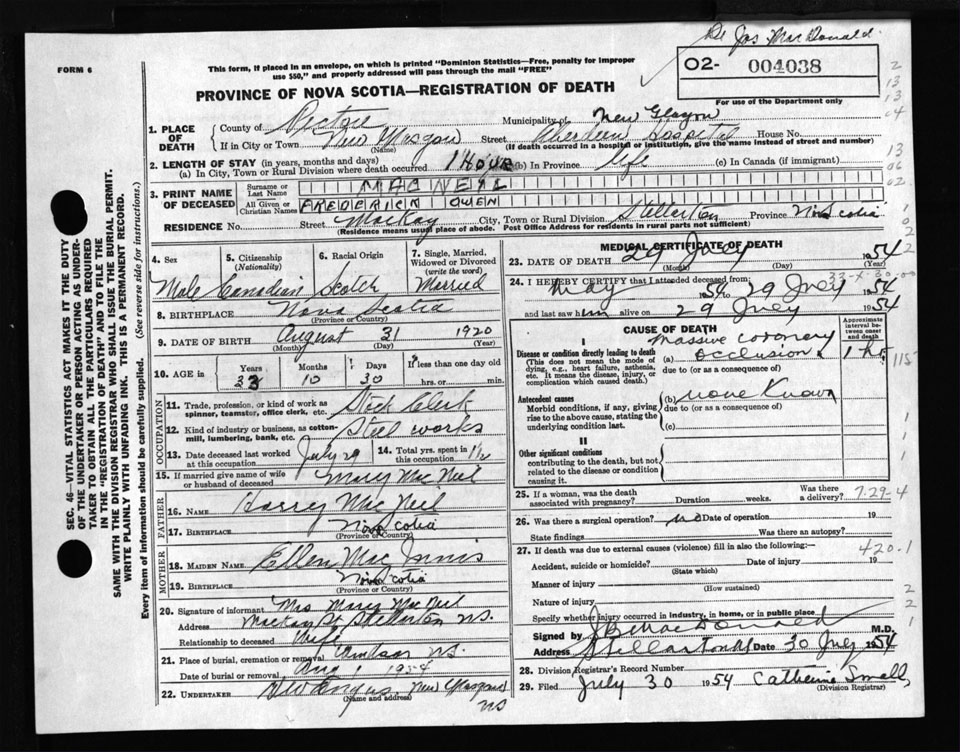 Dr Jos. MacDonald
FORM 6
This form, if placed in an envelope, on which is printed "Dominion Statistics—Free, penalty for improper use $50," and properly addressed will pass through the mail "FREE"
O2- 004038
For use of the Department only
PROVINCE OF NOVA SCOTIA—REGISTRATION OF DEATH
1. PLACE OF DEATH
County of Pictou Municipality of New Glasgow
If in City or Town New Glasgow Street Aberdeen Hospital House No.
(Name) (If death occurred in a hospital or institution, give the name instead of street and number)
2. LENGTH OF STAY (in years, months and days)
(a) In City, Town or Rural Division where death occurred 1 Hour (b) In Province Life (c) In Canada (if immigrant)
3. PRINT NAME OF DECEASED
Surname or Last Name MACNEIL
All Given or Christian Names FREDERICK OWEN
RESIDENCE No. Street MacKay City, Town or Rural Division Stellarton Province N. Scotia
(Residence means usual place of abode. Post Office Address for residents in rural parts not sufficient)
4. Sex Male
5. Citizenship (Nationality) Canadian
6. Racial Origin Scotch
7. Single, Married, Widowed or Divorced (write the word) Married
8. BIRTHPLACE Nova Scotia
(Province or Country)
9. DATE OF BIRTH August 31 1920
(Month) (Day) (Year)
10. AGE in Years 33 Months 10 Days 30 If less than one day old hrs. or min.
OCCUPATION
11. Trade, profession, or kind of work as spinner, teamster, office clerk, etc. Stock Clerk
12. Kind of industry or business, as cotton-mill, lumbering, bank, etc. Steel works
13. Date deceased last worked at this occupation July 29
14. Total yrs. spent in this occupation 1 1/2
15. If married give name of wife or husband of deceased Mary MacNeil
FATHER
16. NAME Harry MacNeil
17. BIRTHPLACE Nova Scotia
(Province or Country)
MOTHER
18. MAIDEN NAME Ellen MacInnis
19. BIRTHPLACE Nova Scotia
(Province or Country)
20. Signature of informant Mrs Mary MacNeil
Address MacKay St Stellarton N.S.
Relationship to deceased Wife
21. Place of burial, cremation or removal Windsor N.S.
Date of burial or removal Aug 1 1954
22. UNDERTAKER New Glasgow NS
(Name and address)
MEDICAL CERTIFICATE OF DEATH
23. DATE OF DEATH 29 July 1954
(Month) (Day) (Year)
33-X-30,00
24. I HEREBY CERTIFY that I attended deceased from
May 1954 29 July 1954
and last saw him alive on 29 July 1954
CAUSE OF DEATH
Approximate interval between onset and death
I
Disease or condition directly leading to death
(This does not mean the mode of dying, e.g., heart failure, asthenia, etc. It means the disease, injury, or complication which caused death.)
(a) Massive coronary occlusion. 1 hr.
due to (or as consequence of)
Antecedent causes
Morbid conditions, if any, giving rise to the above cause, stating the underlying condition last.
(b) none Known
due to (or as a consequence of)
(c)
II
Other significant conditions
contributing to the death, but not related to the disease or condition causing it.
25. If a woman, was the death associated with pregnancy? Duration weeks. Was there a delivery?
7-29-4
26. Was there a surgical operation? no Date of operation 19
State findings Was there an autopsy?
27. If death was due to external causes (violence) fill in also the following:
420-1
Accident, suicide or homicide? Date of injury 19
(State which)
Manner of injury
(How sustained)
Nature of injury
Specify whether injury occurred in industry, in home, or in public place
Signed by J B MacDonald M.D.
Address Stellarton NS Date 30 July 1954
28. Division Registrar's Record Number
29. Filed July 30 1954 Catherine Small
(Division Registrar)
SEC. 46—VITAL STATISTICS ACT MAKES IT THE DUTY OF THE UNDERTAKER OR PERSON ACTING AS UNDERTAKER TO OBTAIN ALL THE PARTICULARS REQUIRED IN THE "REGISTRATION OF DEATH" AND TO FILE THE SAME WITH THE DIVISION REGISTRAR WHO SHALL ISSUE THE BURIAL PERMIT.
WRITE PLAINLY WITH UNFADING INK. THIS IS A PERMANENT RECORD.
Every item of information should be carefully supplied. (See reverse side for instructions.)